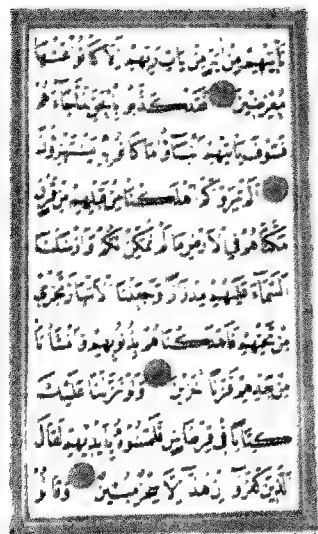 تأتيهم من آية من آيات ربهم إلا كانوا عنها
معرضين فقد كذبوا بالحق لما جاءهم
فسوف يأتيهم أنباء ما كانوا به يستهزؤن
ألم يروا كم أهلكنا من قبلهم من قرن
مكناهم في الأرض ما لم نمكن لكم وأرسلنا
السماء عليهم مدرارا وجعلنا الأنهار تجري
من تحتهم فأهلكناهم بذنوبهم وأنشأنا
من بعدهم قرنا آخرين ولو نزلنا عليك
كتابا في قرطاس فلمسوه بأيديهم لقال
الذين كفروا إن هذا إلا سحر مبين وقالوا